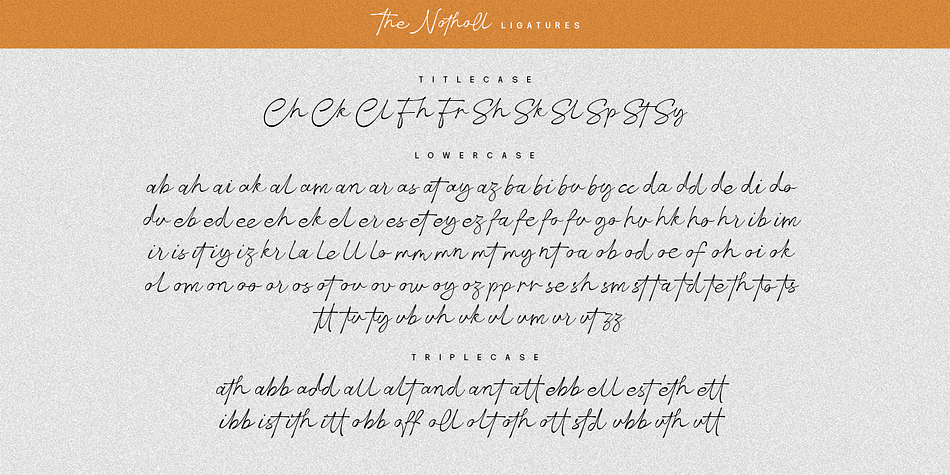 The Notholl LIGATURES
TITLECASE
Ch Ck Cl Fh Fr Sh Sk Sl Sp St Sy
LOWERCASE
ab ah ai ak al am an ar as at ay az ba bi bu by cc da dd de di do
du eb ed ee eh ek el er es et ey ez fa fe fo fu go hu hk ho hr ib im
ir is it iy iz kr la le ll lo mm mn mt my nt oa ob od oe of oh oi ok
ol om on oo or os ot ou ov ow oy oz pp rr se sh sm st ta td te th to ts
tt tu ty ub uh uk ul um ur ut zz
TRIPLECASE
ath abb add all alt and ant att ebb ell est eth ett
ibb ist ith itt obb off oll olt oth ott std ubb uth utt